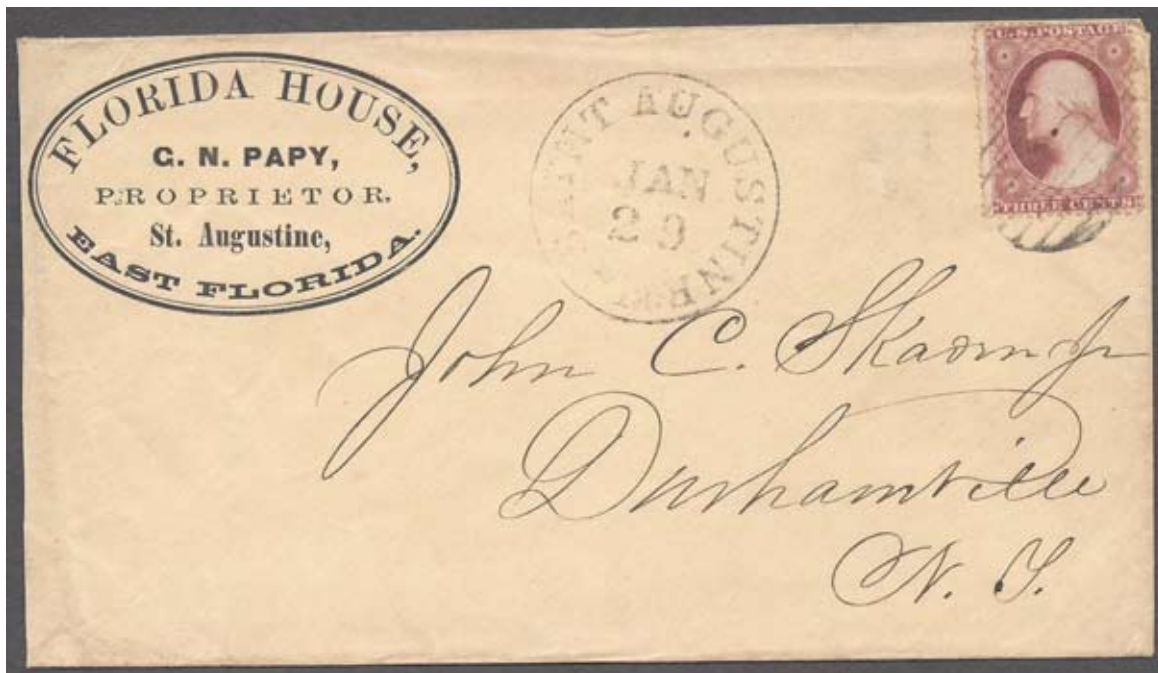 FLORIDA HOUSE,
G. N. PAPY,
PROPRIETOR.
St. Augustine,
EAST FLORIDA.
SAINT AUGUSTINE
JAN
29
U.S. POSTAGE
THREE CENTS
John C.
Durhamville
N. Y.